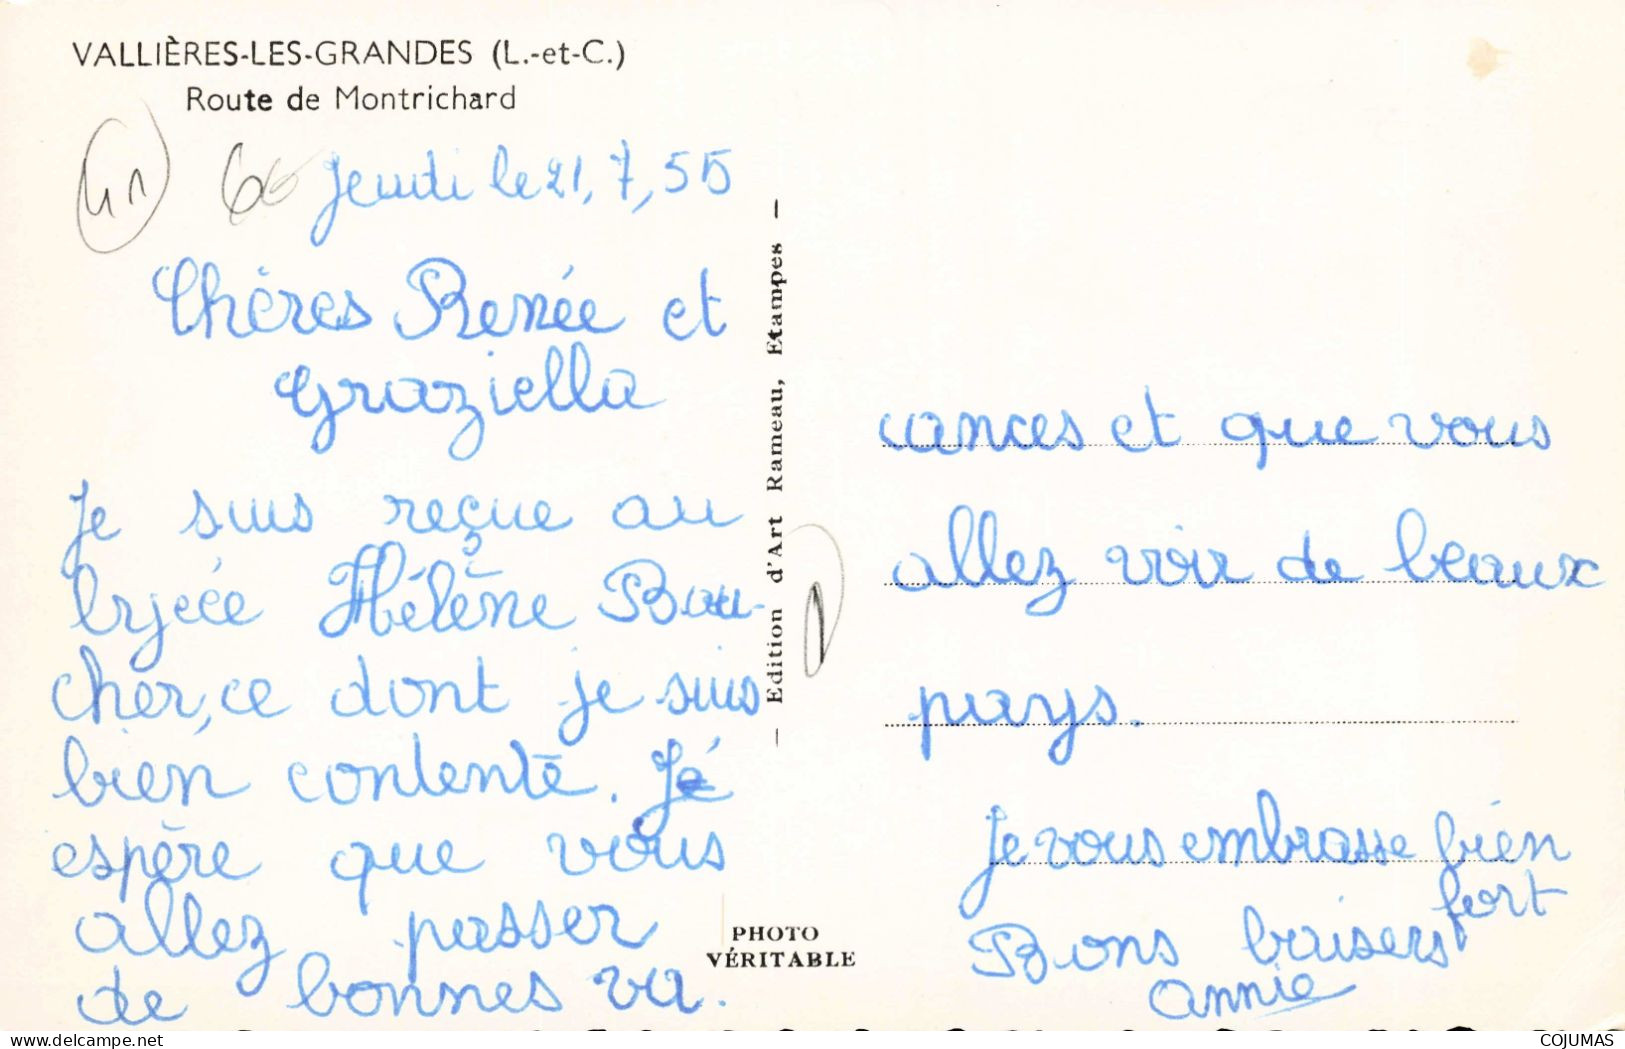 VALLIÈRES-LES-GRANDES (L.-et-C.)
Route de Montrichard
41 60 Jeudi le 21, 7, 55
Chères Renée et
Graziella
Je suis reçue au
lycée Hélène Bou-
cher, ce dont je suis
bien contente. Je
espère que vous
allez passer
de bonnes va.
— Edition d'Art Rameau, Etampes —
PHOTO
VÉRITABLE
cances et que vous
allez voir de beaux
pays.
Je vous embrasse bien
fort
Bons baisers
Annie
COJUMAS